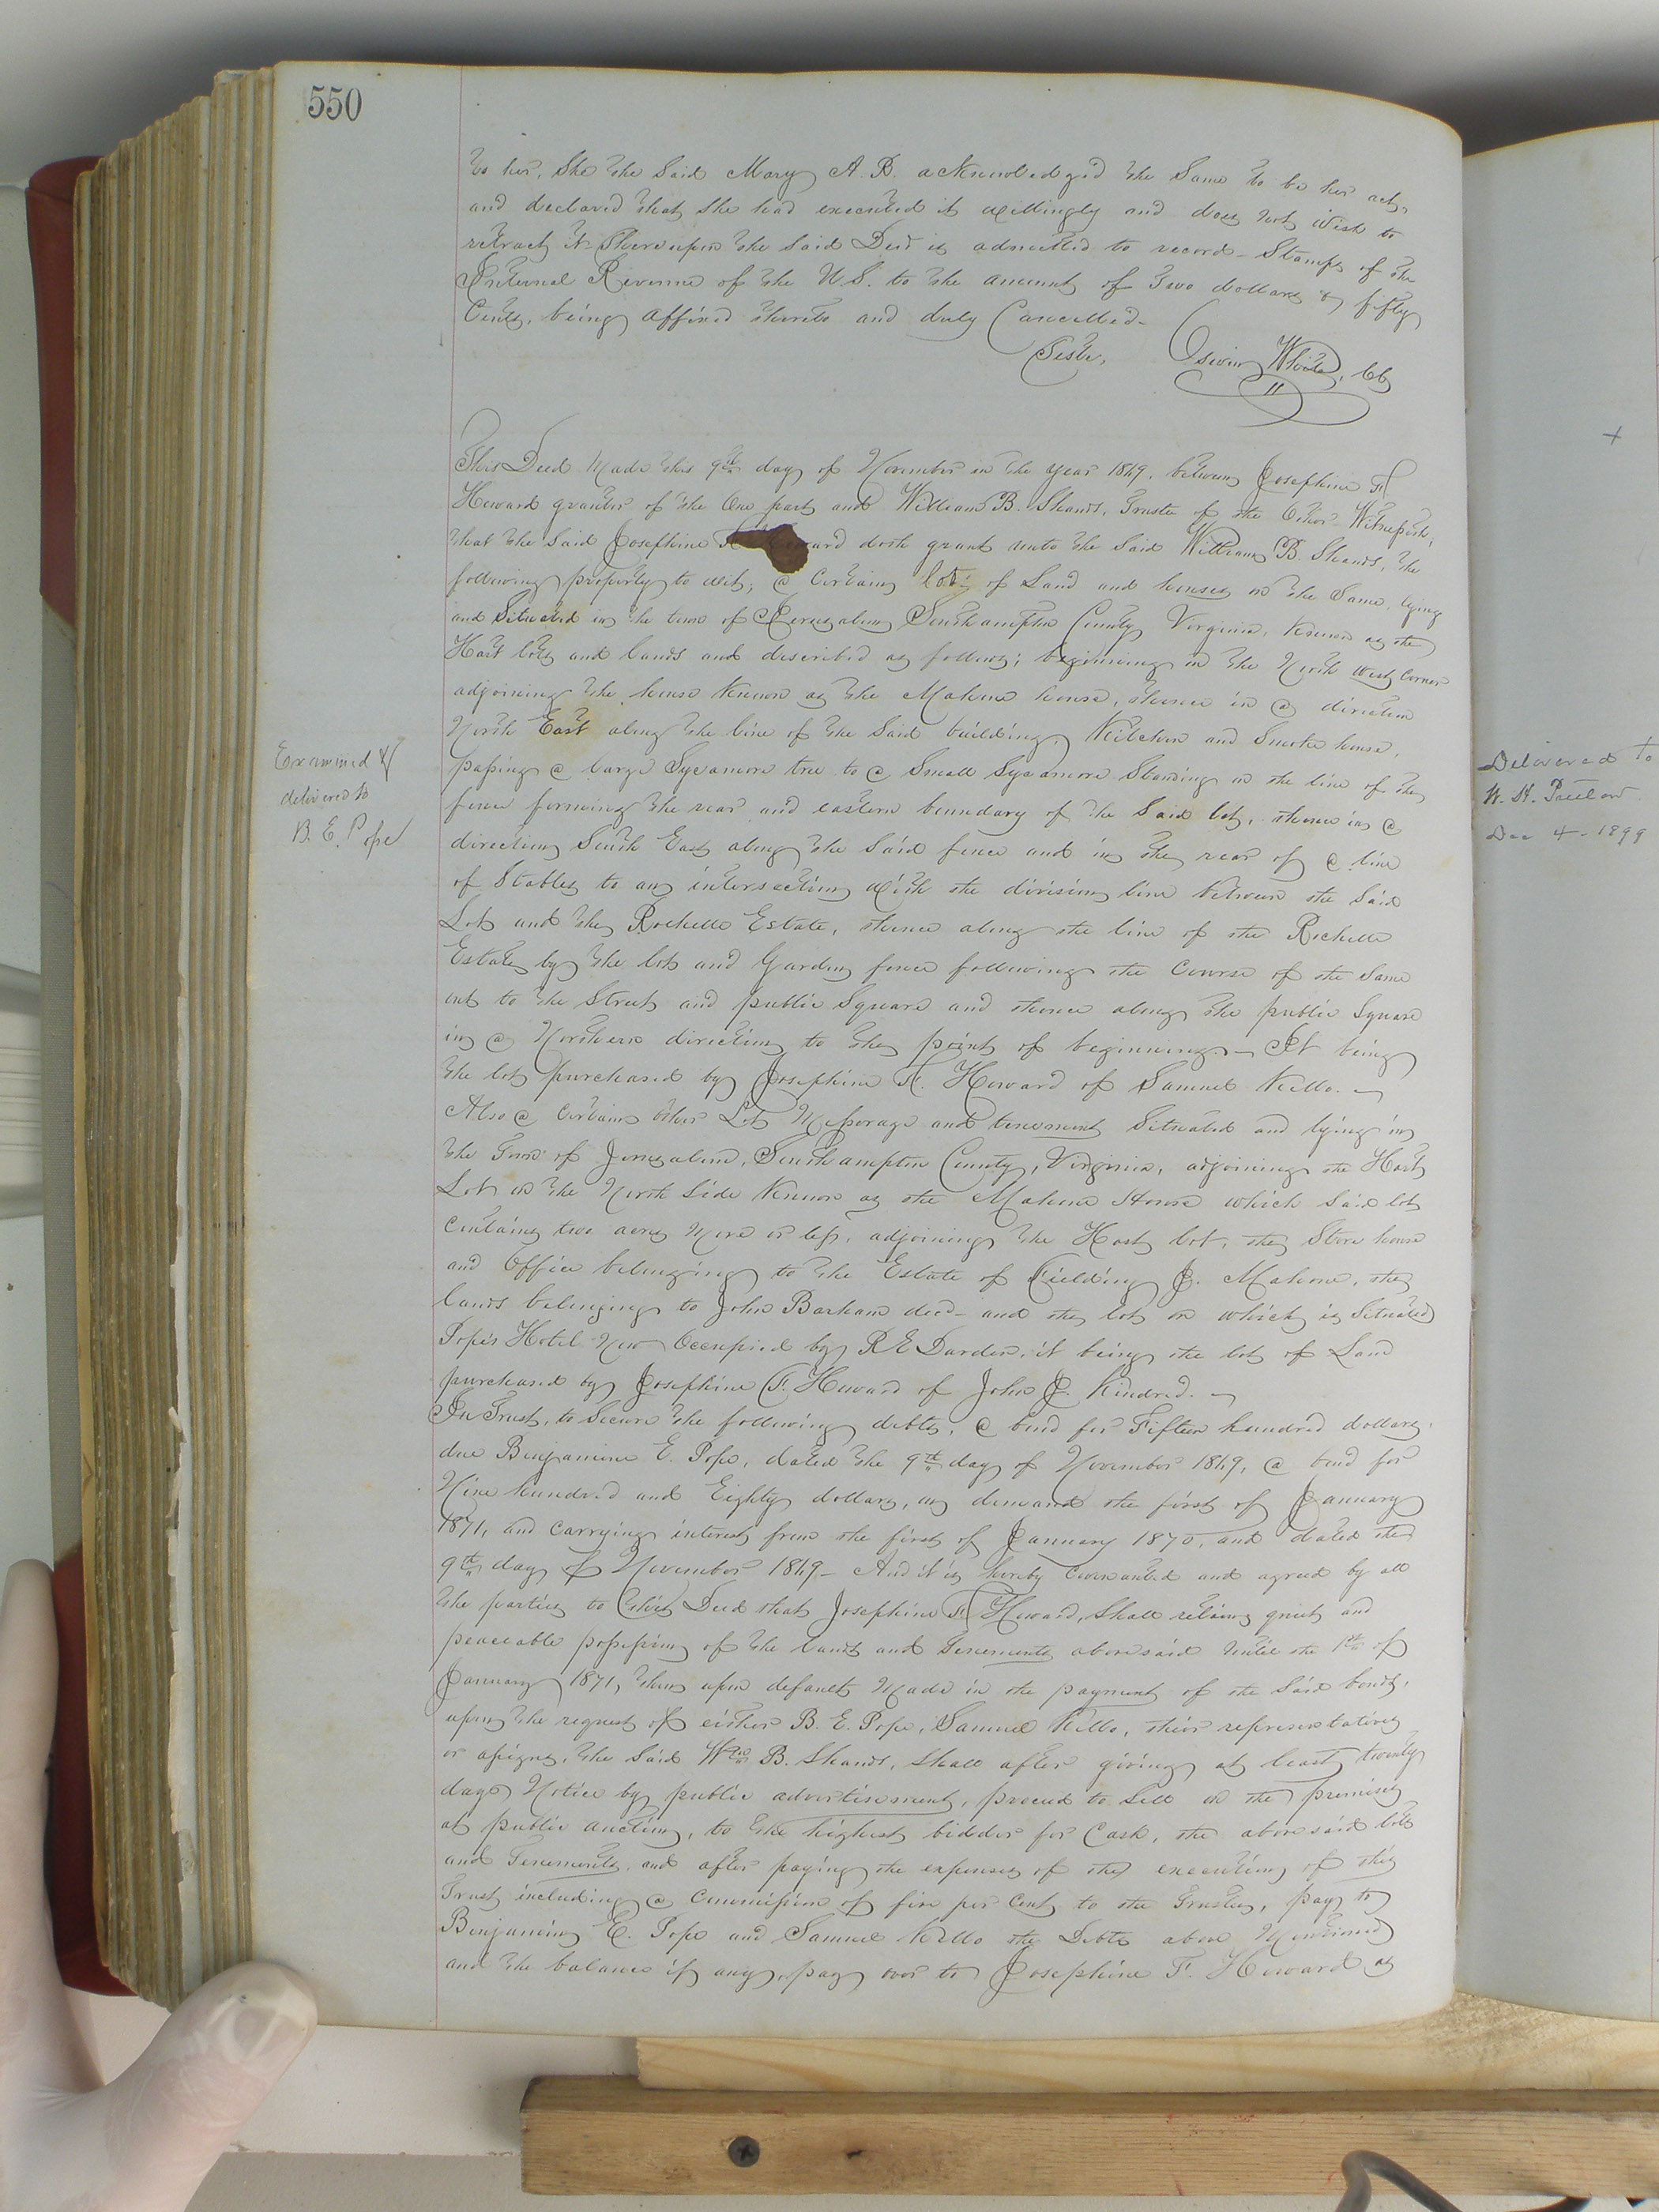 550
to her, She the Said Mary A. B. acknowledged the Same to be her act,
and declared that She had executed it willingly and does not wish to
retract it. Thereupon the Said Deed is admitted to record - Stamps of the
Internal Revenue of the U S. to the amount of Two dollars & fifty
Cents, being affixed thereto and duly Cancelled.
Teste,
This Deed Made this 9th day of November in the year 1869, between Josephine F.
Howard grantor of the One part and William B. Shands, Trustee of the Other Witnesseth;
that the Said Josephine doth grant unto the Said William B. Shands, the
following property to wit; a Certain lot of Land and houses on the Same, lying
and Situated in the town of Jerusalem Southampton County Virginia, Known as the
Hart lots and lands and described as follows; beginning in the North west Corner
adjoining the house Known as the Mahone house, thence in a direction
North East along the line of the Said building, Kitchen and Smoke house,
passing a large Sycamore tree to a Small Sycamore Standing on the line of the
fence forming the rear and eastern boundary of the Said lot, thence in a
direction South East along the Said fence and in the rear of a line
of Stables to an intersection with the division line between the Said
Lot and the Rochelle Estate, thence along the line of the Rochelle
Estate by the lot and Garden fence following the Course of the Same
out to the Street and public Square and thence along the public Square
in a Northern direction to the point of beginning. - It being
the lot purchased by Josephine F. Howard of Samuel Kello. -
Also a Certain other Lot Messuage and tenement Situated and lying in
the Town of Jerusalem, Southampton County, Virginia, adjoining the Hart
Lot on the North Side Known as the Mahone House which Said lot
Contains two acres More or less, adjoining the Hart lot, the Store house
and Office belonging to the Estate of Fielding J. Mahone, the
lands belonging to John Barham decd - and the lot on which is Situated
Pope's Hotel Now Occupied by R E Darden, it being the lot of Land
purchased by Josephine F. Howard of John J. Kindred. -
In Trust, to Secure the following debts, a bond for Fifteen hundred dollars,
due Benjamin E. Pope, dated the 9th day of November 1869, a bond for
Nine hundred and Eighty dollars, on demand the first of January
1871, and Carrying interest from the first of January 1870, and dated the
9th day of November 1869 - And it is hereby Covenanted and agreed by all
the parties to this Deed that Josephine F. Howard, Shall retain quiet and
peaceable possession of the lands and Tenements abovesaid until the 1st of
January 1871, then upon default Made in the payment of the Said bonds,
upon the request of either B. E. Pope, Samuel Kello, their representatives
or assigns, the Said Wm B. Shands, Shall after giving at least twenty
days Notice by public advertisement, proceed to Sell on the premises
at public auction, to the highest bidder for Cash, the abovesaid lots
and Tenements, and after paying the expenses of the execution of this
Trust including a Commission of five per Cent to the Trustee, pay to
Benjamin E. Pope and Samuel Kello the Debts above Mentioned
and the balance if any, pay over to Josephine F. Howard as
Examined &
delivered to
B. E. Pope
Delivered to
W. H.
Dec 4 - 1899